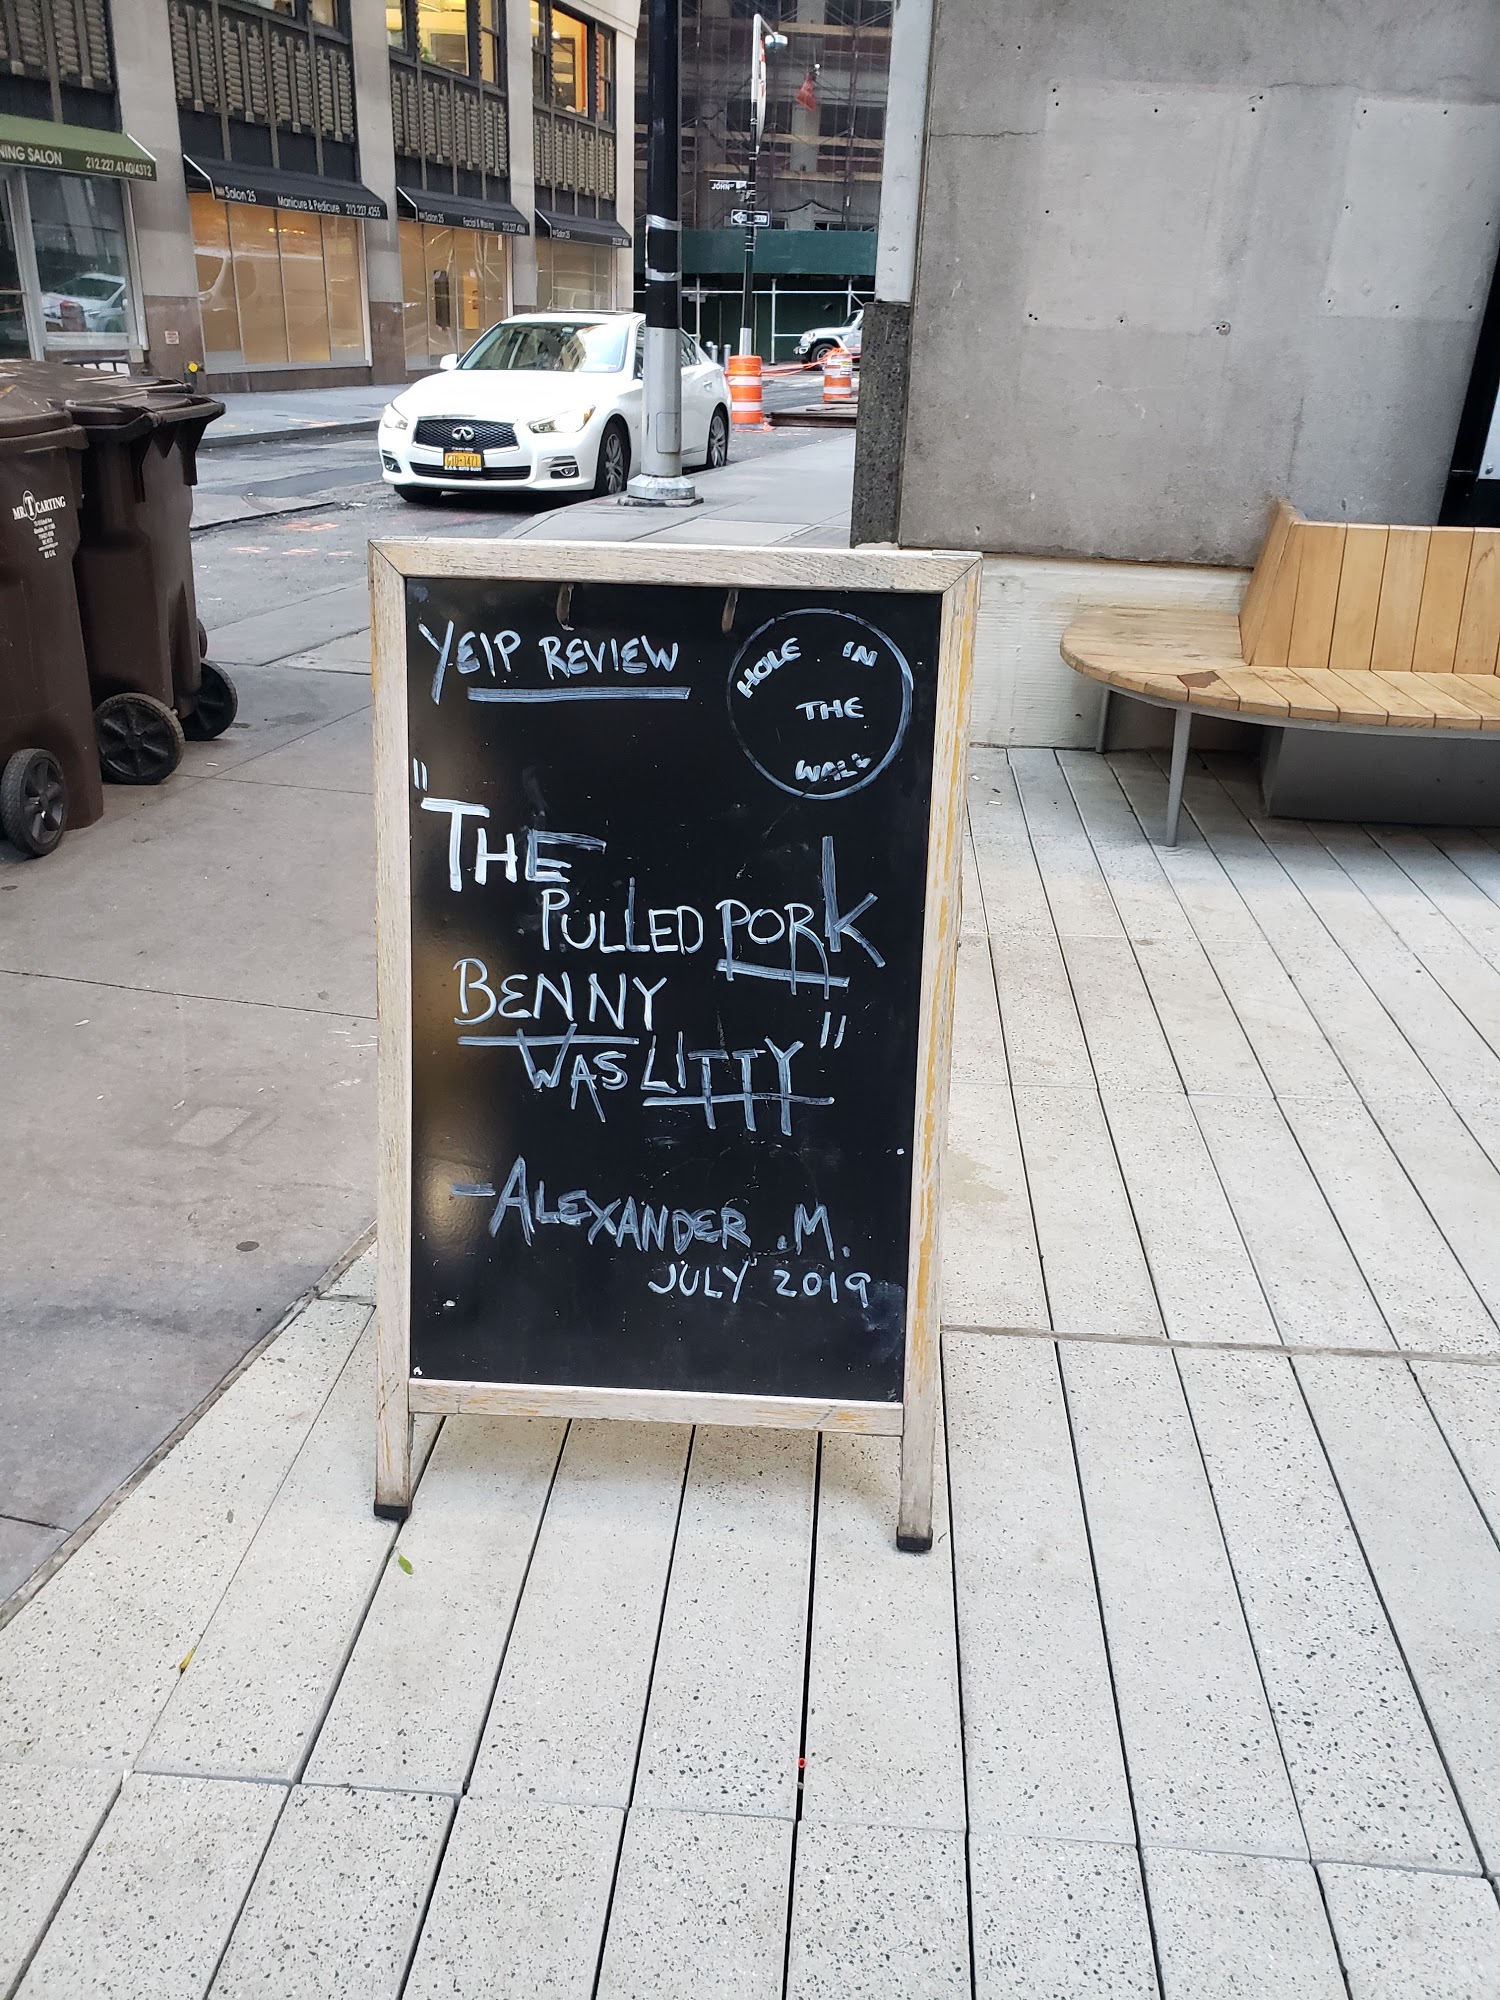 NING SALON 212.227.4140/4312
Salon 25 Manicure & Pedicure 212.227.4255
Salon 25 Facial & Waxing
Salon 25
JOHN
MR. T CARTING
YElP REVIEW
HOLE IN
THE
WALL
"THE
PULLED PORK
BENNY
WAS LITTY"
-ALEXANDER .M.
JULY 2019